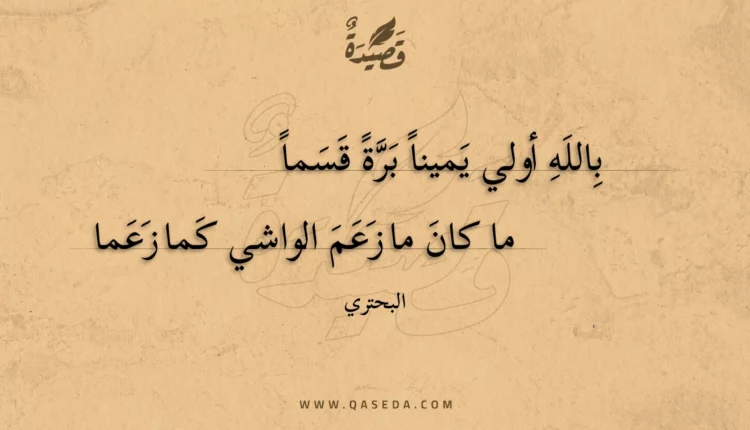 قَصِيْدَةٌ
بِاللَهِ أولي يَميناً بَرَّةً قَسَماً
ما كانَ ما زَعَمَ الواشي كَما زَعَما
البحتري
WWW.QASEDA.COM